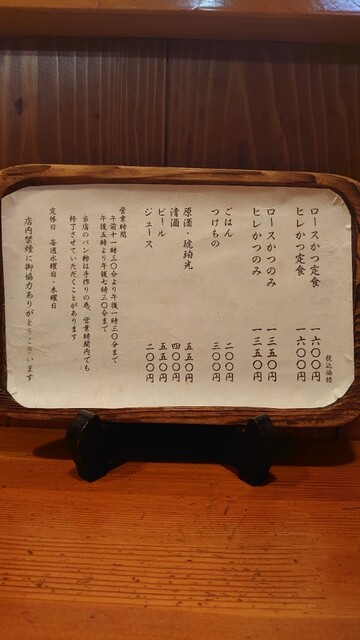 税込価格
ロースかつ定食 一六〇〇円
ヒレかつ定食 一六〇〇円
ロースかつのみ 一三五〇円
ヒレかつのみ 一三五〇円
ごはん 二〇〇円
つけもの 三〇〇円
原酒・琥珀光 五五〇円
清酒 四〇〇円
ビール 五五〇円
ジュース 二〇〇円
営業時間
午前十一時三〇分より午後一時三〇分まで
午後五時より午後七時三〇分まで
当店のパン粉は手作りの為、営業時間内でも
終了させていただくことがあります
定休日 毎週水曜日・木曜日
店内禁煙に御協力ありがとうございます